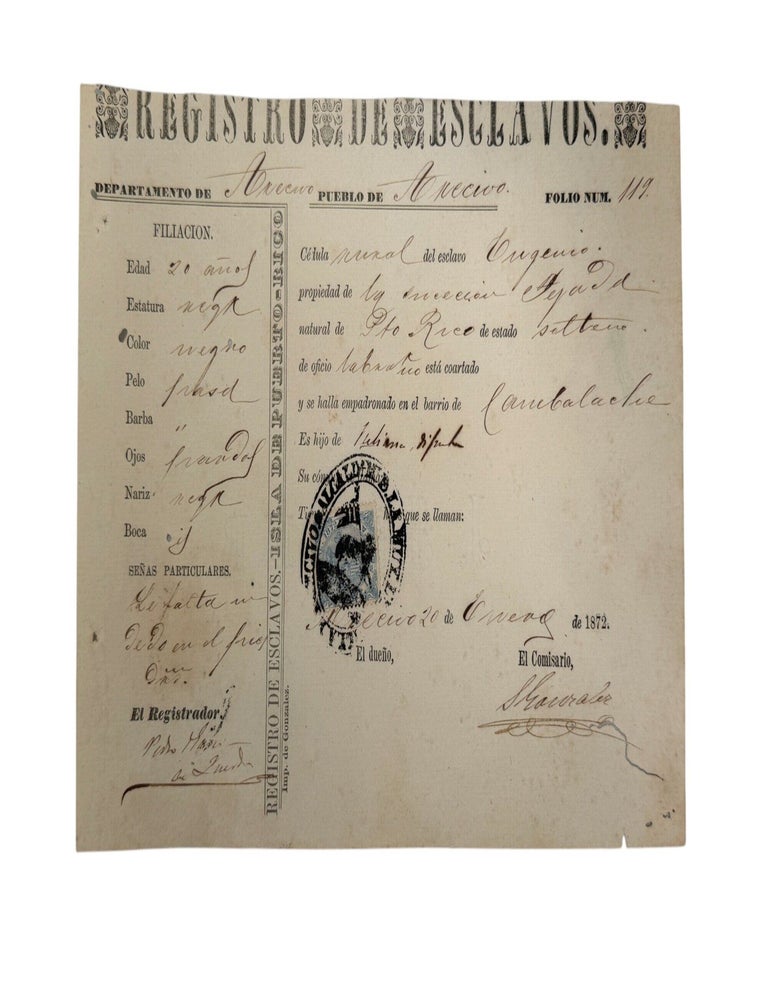 REGISTRO DE ESCLAVOS.
DEPARTAMENTO DE Arecivo PUEBLO DE Arecivo. FOLIO NUM. 119.
FILIACION.
Edad 20 años
Estatura regr
Color negro
Pelo pasa
Barba "
Ojos grandes
Nariz regr
Boca id
SEÑAS PARTICULARES.
Le falta un
dedo en el pie
El Registrador,
Pedro
REGISTRO DE ESCLAVOS.—ISLA DE PUERTO-RICO
Imp. de Gonzalez.
Cédula rural del esclavo Eugenio.
propiedad de la sucecion
natural de Pto Rico de estado soltero.
de oficio está coartado
y se halla empadronado en el barrio de Cambalache
Es hijo de Juliana, difunta
Su
que se llaman:
Arecivo 20 de Enero de 1872.
El dueño,
El Comisario,
S Gonzalez